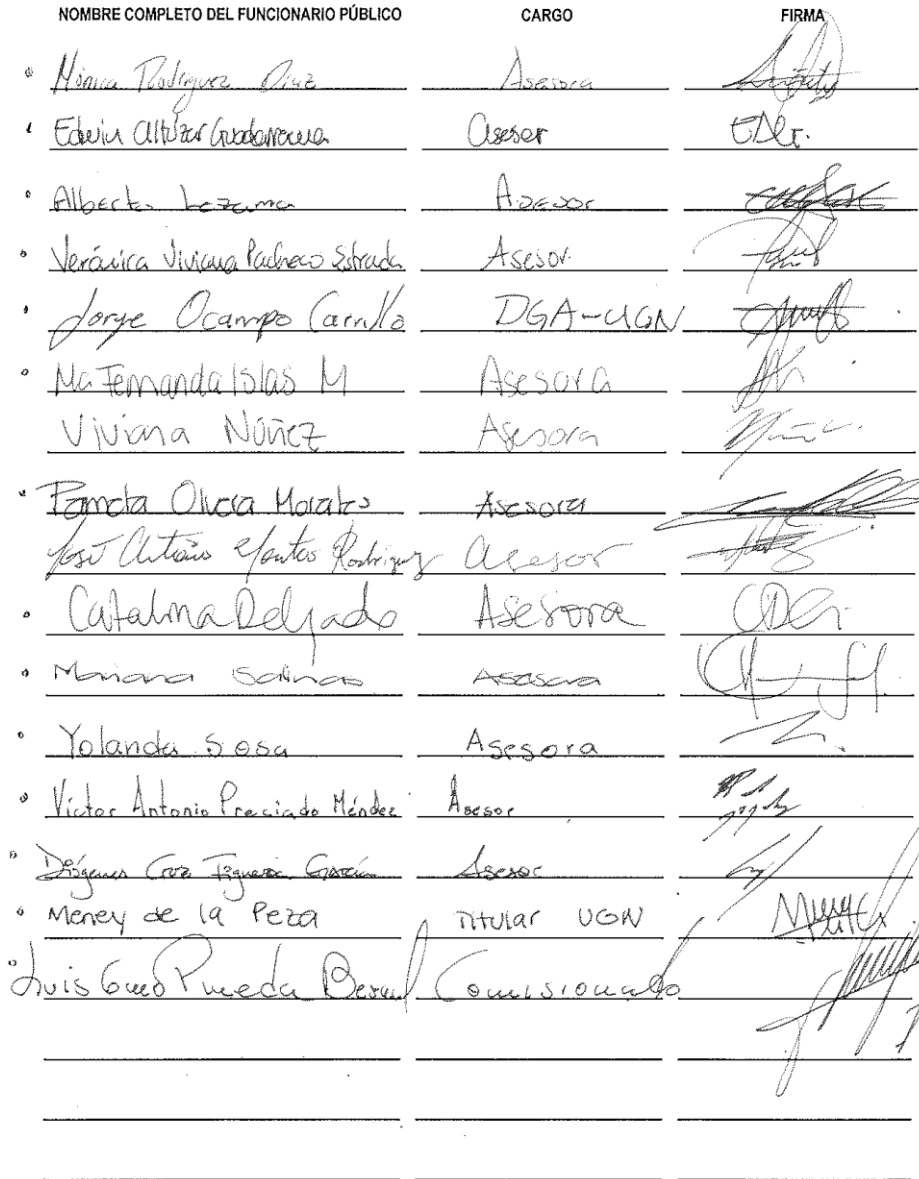 NOMBRE COMPLETO DEL FUNCIONARIO PÚBLICO CARGO FIRMA
Mónica Rodríguez Díaz Asesora
Edwin Altúzar Guadarrama asesor EAG.
Alberto Lezama Asesor
Verónica Viviana Pacheco Estrada Asesor.
Jorge Ocampo Carrillo DGA-UGN
Ma Fernanda Islas M Asesora
Viviana Núñez Asesora
Pamela Olvera Morales Asesora
José Antonio Montes Rodríguez asesor
Catalina Delgado Asesora
Mariana Salinas Asesora
Yolanda Sosa Asesora
Víctor Antonio Preciado Méndez Asesor
Diógenes Cruz Figueroa García Asesor
Meney de la Peza Titular UGN
Luis Pineda Bernal Comisionado